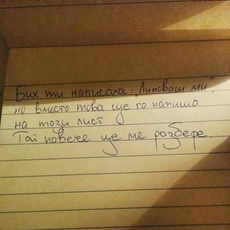 Бих ти написала „Липсваш ми",
но вместо това ще го напиша
на този лист
Той повече ще ме разбере.